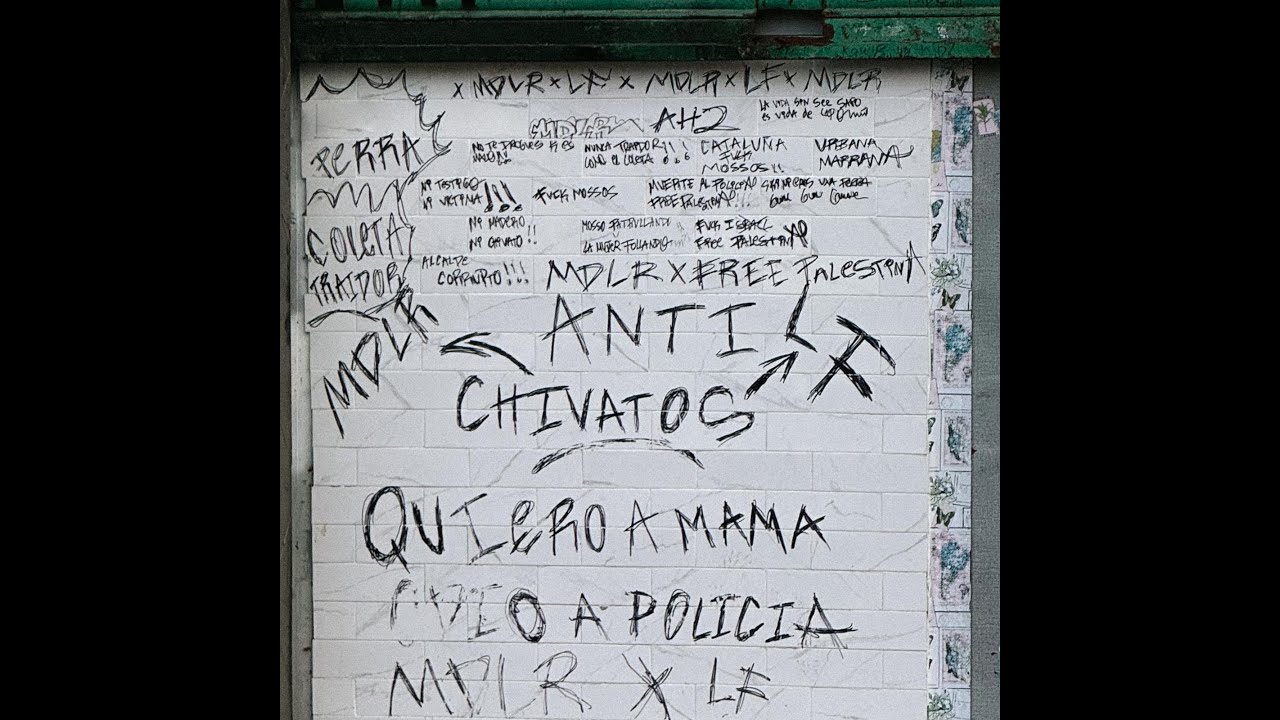 x MDLR x LF x MDLR x LF x MDLR
LA VIDA SIN SER SAPO
ES VIDA DE
MDLR
AH2
PERRA
NUNCA TRAIDOR!!!
COMO EL COLETA
CATALUÑA
FUCK
MOSSOS!!
URBANA
MARRANA
NI TESTIGO
NI VICTIMA!!!
FUCK MOSSOS
MUERTE AL POLICIA
FREE PALESTINA!!!
COLETA
TRAIDOR
NI MADERO
NI CHIVATO!!
MOSSO PATRULLANDO
LA MUJER FOLLANDO
FUCK ISRAEL
FREE PALESTINA
ALCALDE
CORRUPTO!!!
MDLR X FREE PALESTINA
MDLR
ANTI LF
CHIVATOS
QUIERO A MAMA
ODIO A POLICIA
MDLR X LF